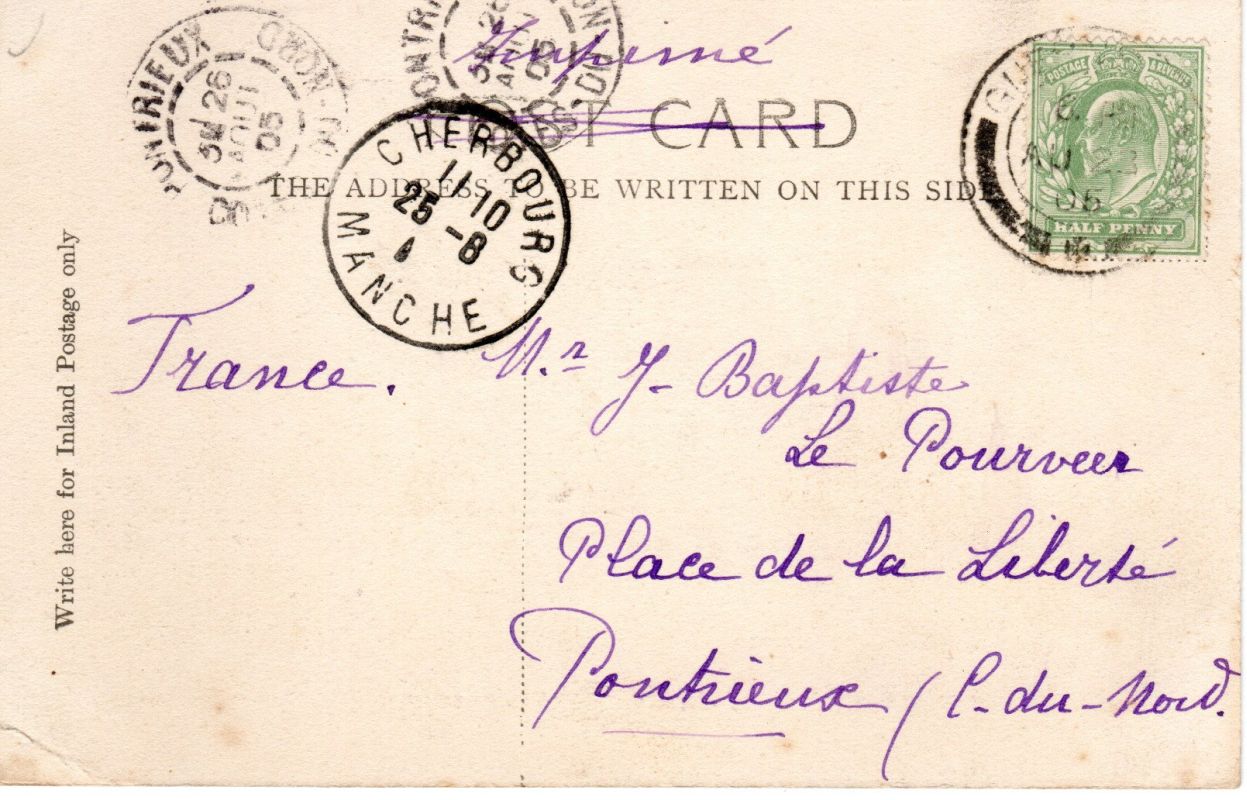 Imprimé
POST CARD
THE ADDRESS TO BE WRITTEN ON THIS SIDE
PONTRIEUX
26
AOUT
05
CHERBOURG
11 10
25 -8
MANCHE
POSTAGE & REVENUE
HALF PENNY
AU
05
Write here for Inland Postage only
France.
Mr J- Baptiste
Le Pourveer
Place de la Liberté
Pontrieux (C-du-Nord.